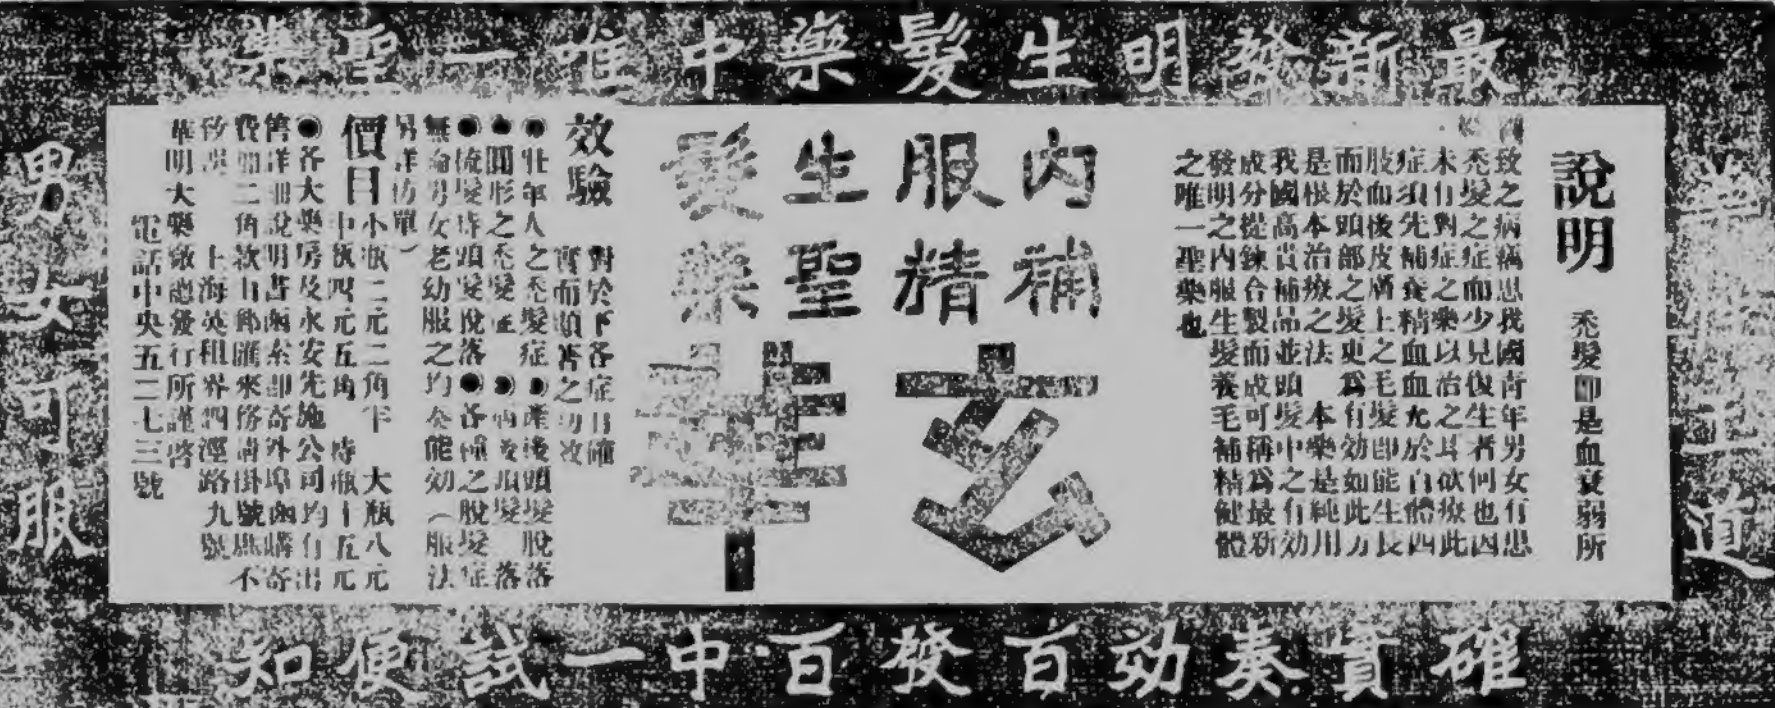 最新發明生髮藥中唯一聖藥
王道
說明
禿髮即是血衰弱所
致之病竊思我國青年男女有患
禿髮之症而少見復生者何也因
未有對症之藥以治之耳欲療此
症須先補養精血血充於百體四
肢血後皮膚上之毛髮即能生長
而於頭部之髮更為有効如此方
是根本治療之法 本藥是純用
我國高貴補品並頭髮中之有効
成分提鍊合製而成可稱為最新
發明之內服生髮養毛補精健體
之唯一聖藥也
內服生髮
補精聖藥
玄華
效驗
對於下各症有確
實而顯著之功效
◉壯年人之禿髮症 ◉產後頭髮脫落
◉圓形之禿髮症 ◉病後頭髮脫落
◉流髮時頭髮脫落 ◉各種之脫髮症
無論男女老幼服之均奏能効（服法
另詳仿單）
價目
小瓶二元二角 大瓶八元
中瓶四元五角 特瓶十五元
◉各大藥房及永安先施公司均有出
售詳細說明書函索即寄外埠函購寄
費加二角款由郵匯來務請掛號庶不
致誤 上海英租界四涇路九號
華明大藥廠總發行所謹啓
電話中央五二七三號
男女可服
確實奏効百發百中一試便知